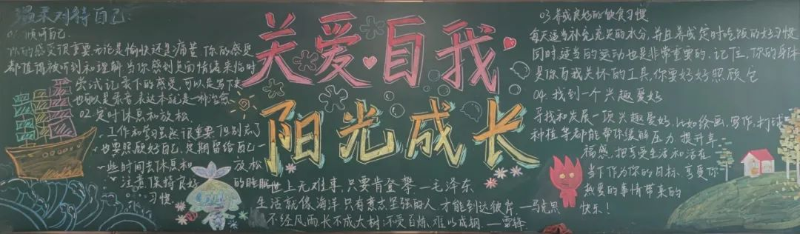 温柔对待自己
01 倾听自己
你的感受很重要无论是愉快还是痛苦 你的感受
都值得被听到和理解 当你感到负面情绪来临时
尝试记录下的感受,可以是写下来
也
02 定时休息和放松
工作和学习虽然很重要 但别忘了
也要照顾好自己,定期留给自己一
些时间去休息和放松
注意保持良好的
习惯
关爱自我
阳光成长
世上无难事,只要肯登攀—毛泽东
生活就像海洋 只有意志坚强的人 才能到达彼岸—马克思
不经风雨长不成大树,不受百炼难以成钢—雷锋
03 养成良好的饮食习惯
每天适当补充充足的水分,并且养成定时吃饭的好习惯
同时适当的运动也是非常重要的,记住,你的身体
是你而我关怀的工具,你要好好照顾它
04 找到一个兴趣爱好
寻找和发展一项兴趣爱好,比如绘画,写作,打球
种植等都能帮你缓解压力 提升幸
福感,把享受生活和活在
当下作为你的目标 享受你
热爱的事情带来的
快乐!